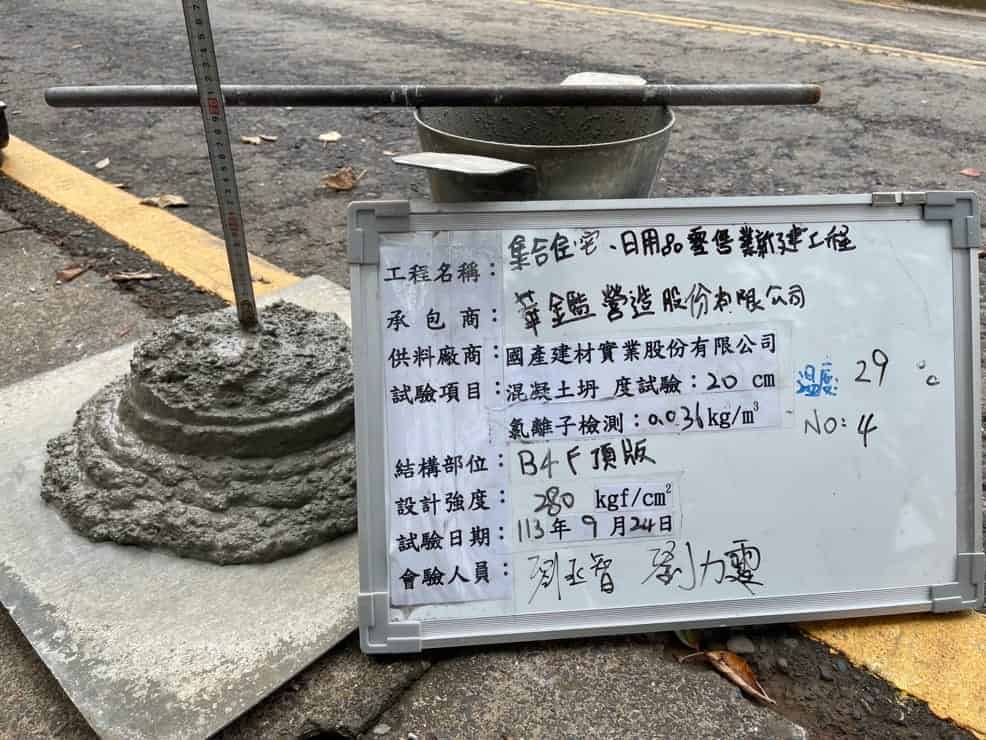 工程名稱：集合住宅、日用品零售業新建工程
承包商：華鑑營造股份有限公司
供料廠商：國產建材實業股份有限公司
試驗項目：混凝土坍 度試驗：20 cm 溫度 29 °c
氯離子檢測：0.036kg/m³ NO: 4
結構部位：B4F頂版
設計強度：280 kgf/cm²
試驗日期：113年9月24日
會驗人員：